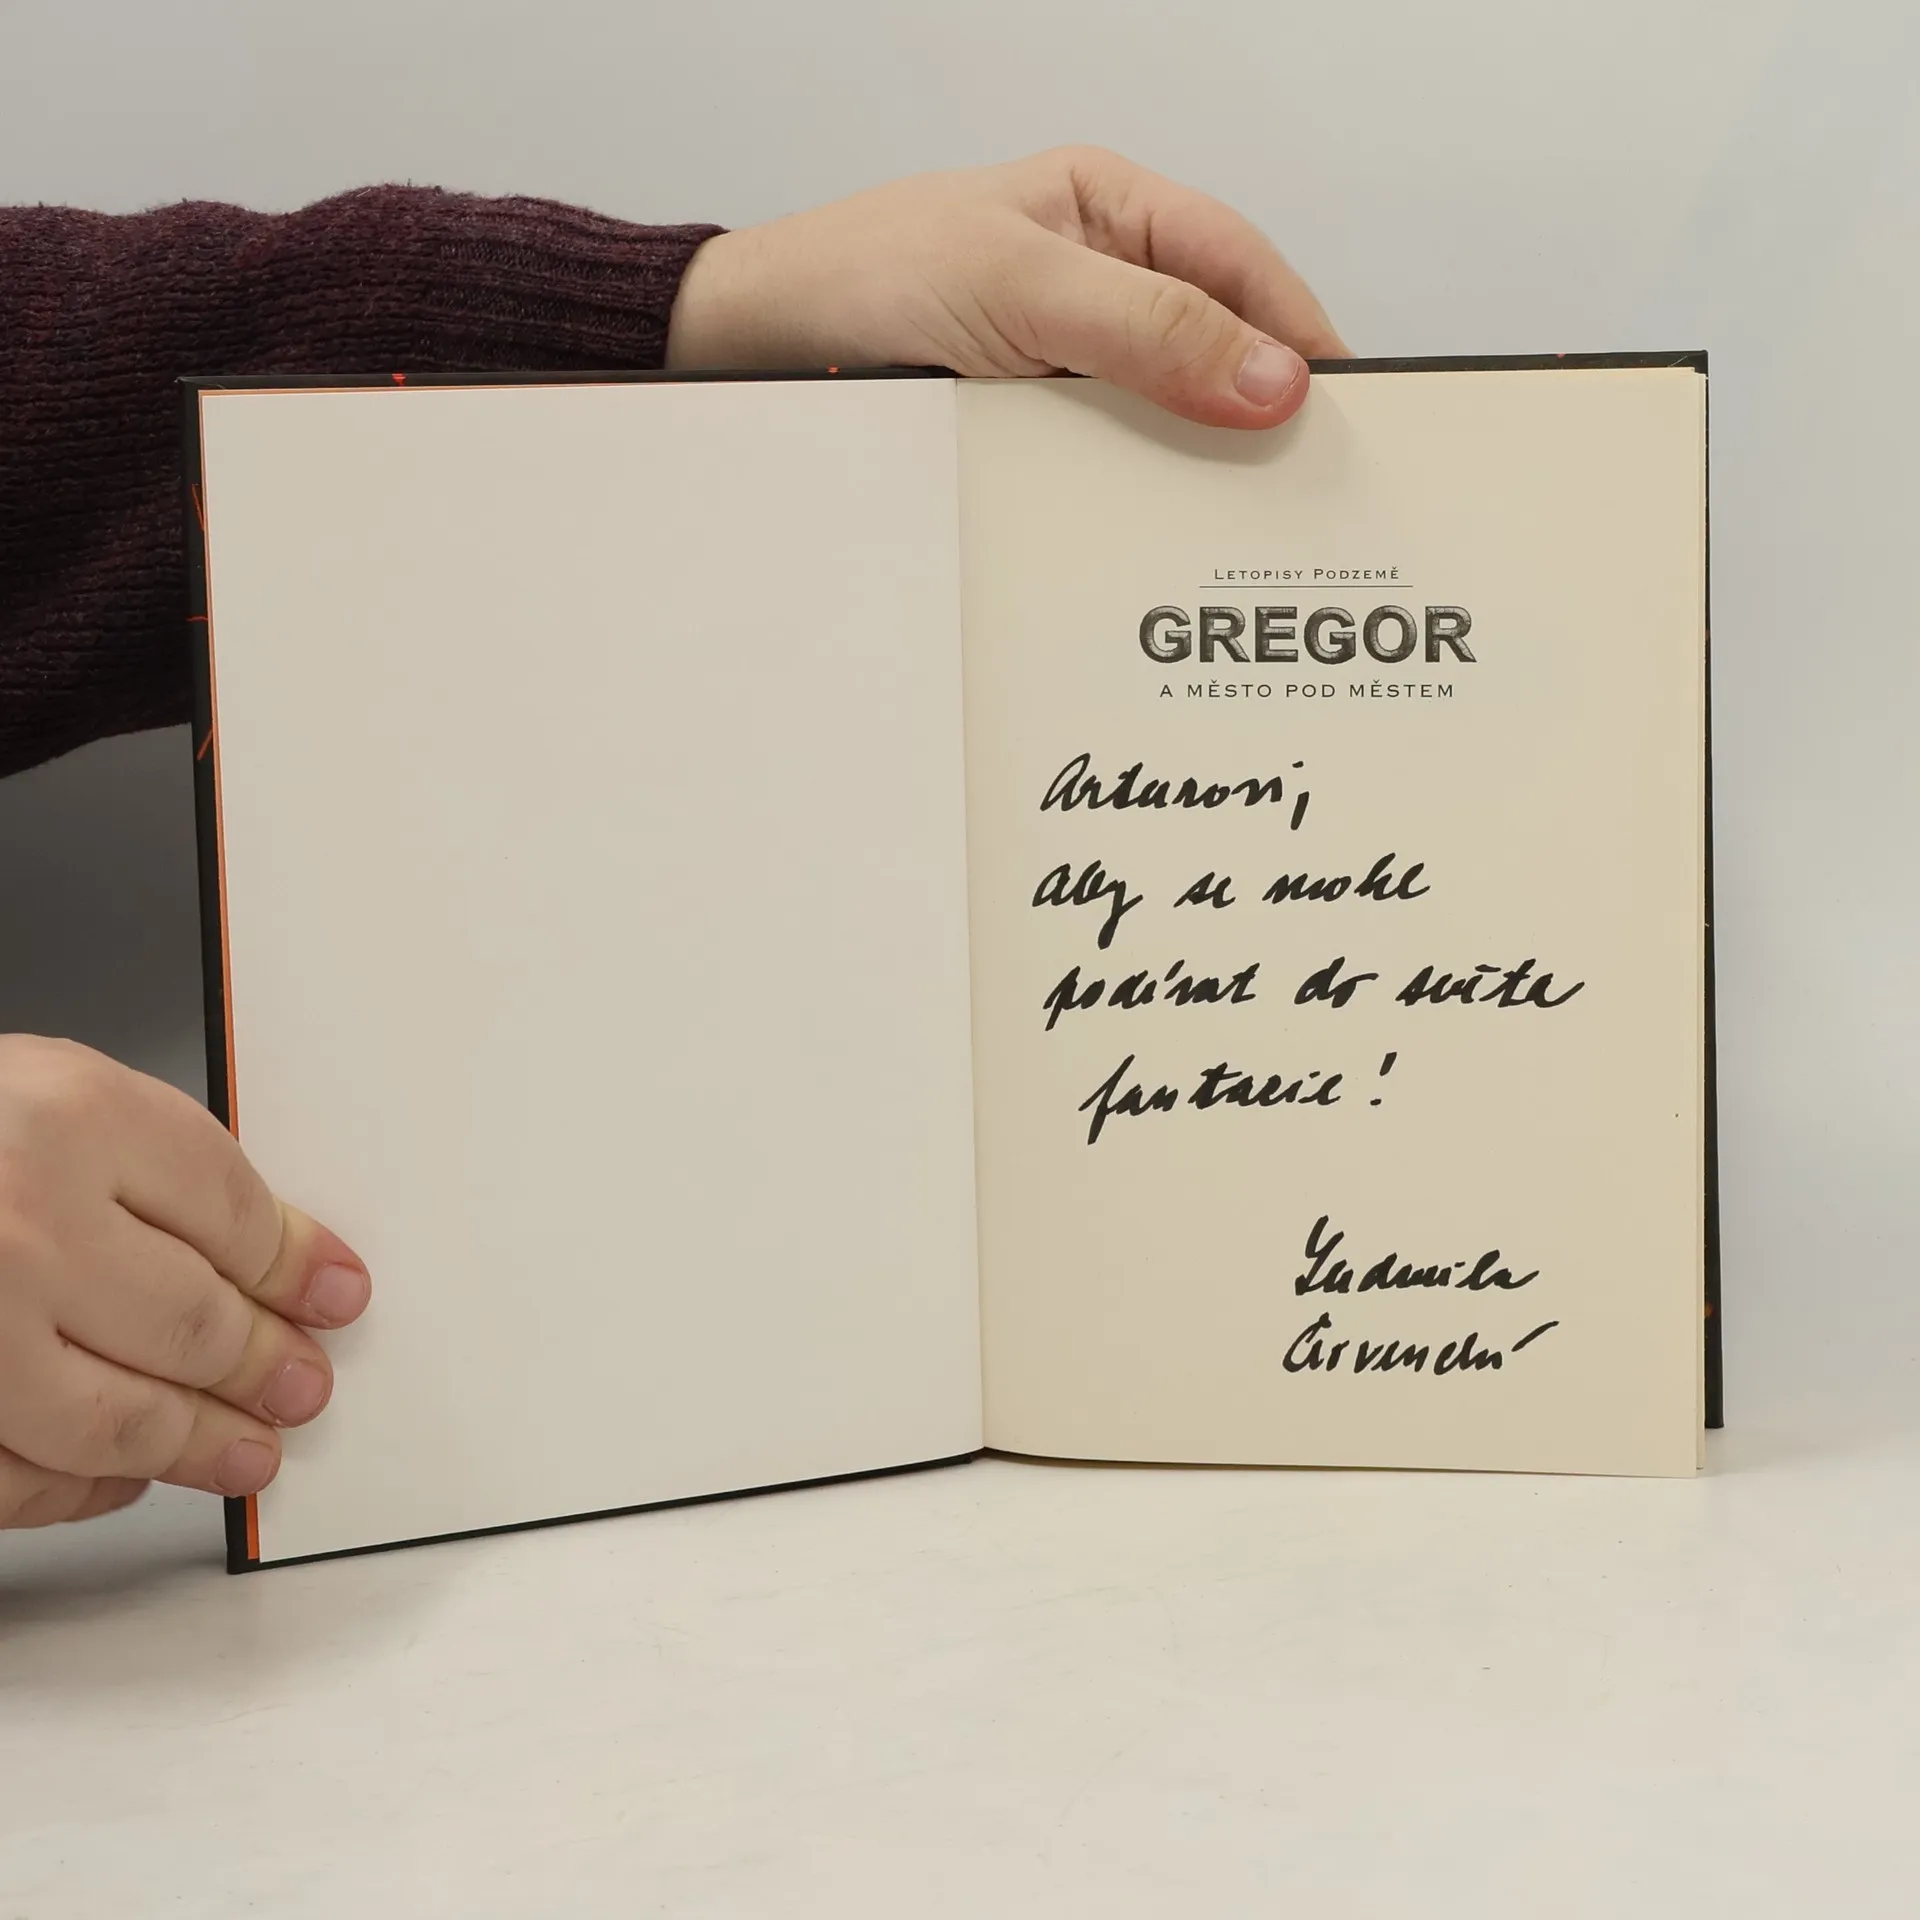 Letopisy Podzemě
GREGOR
A MĚSTO POD MĚSTEM
Arturovi,
aby se mohl
podívat do světa
fantazie!
Ludmila
Červendní